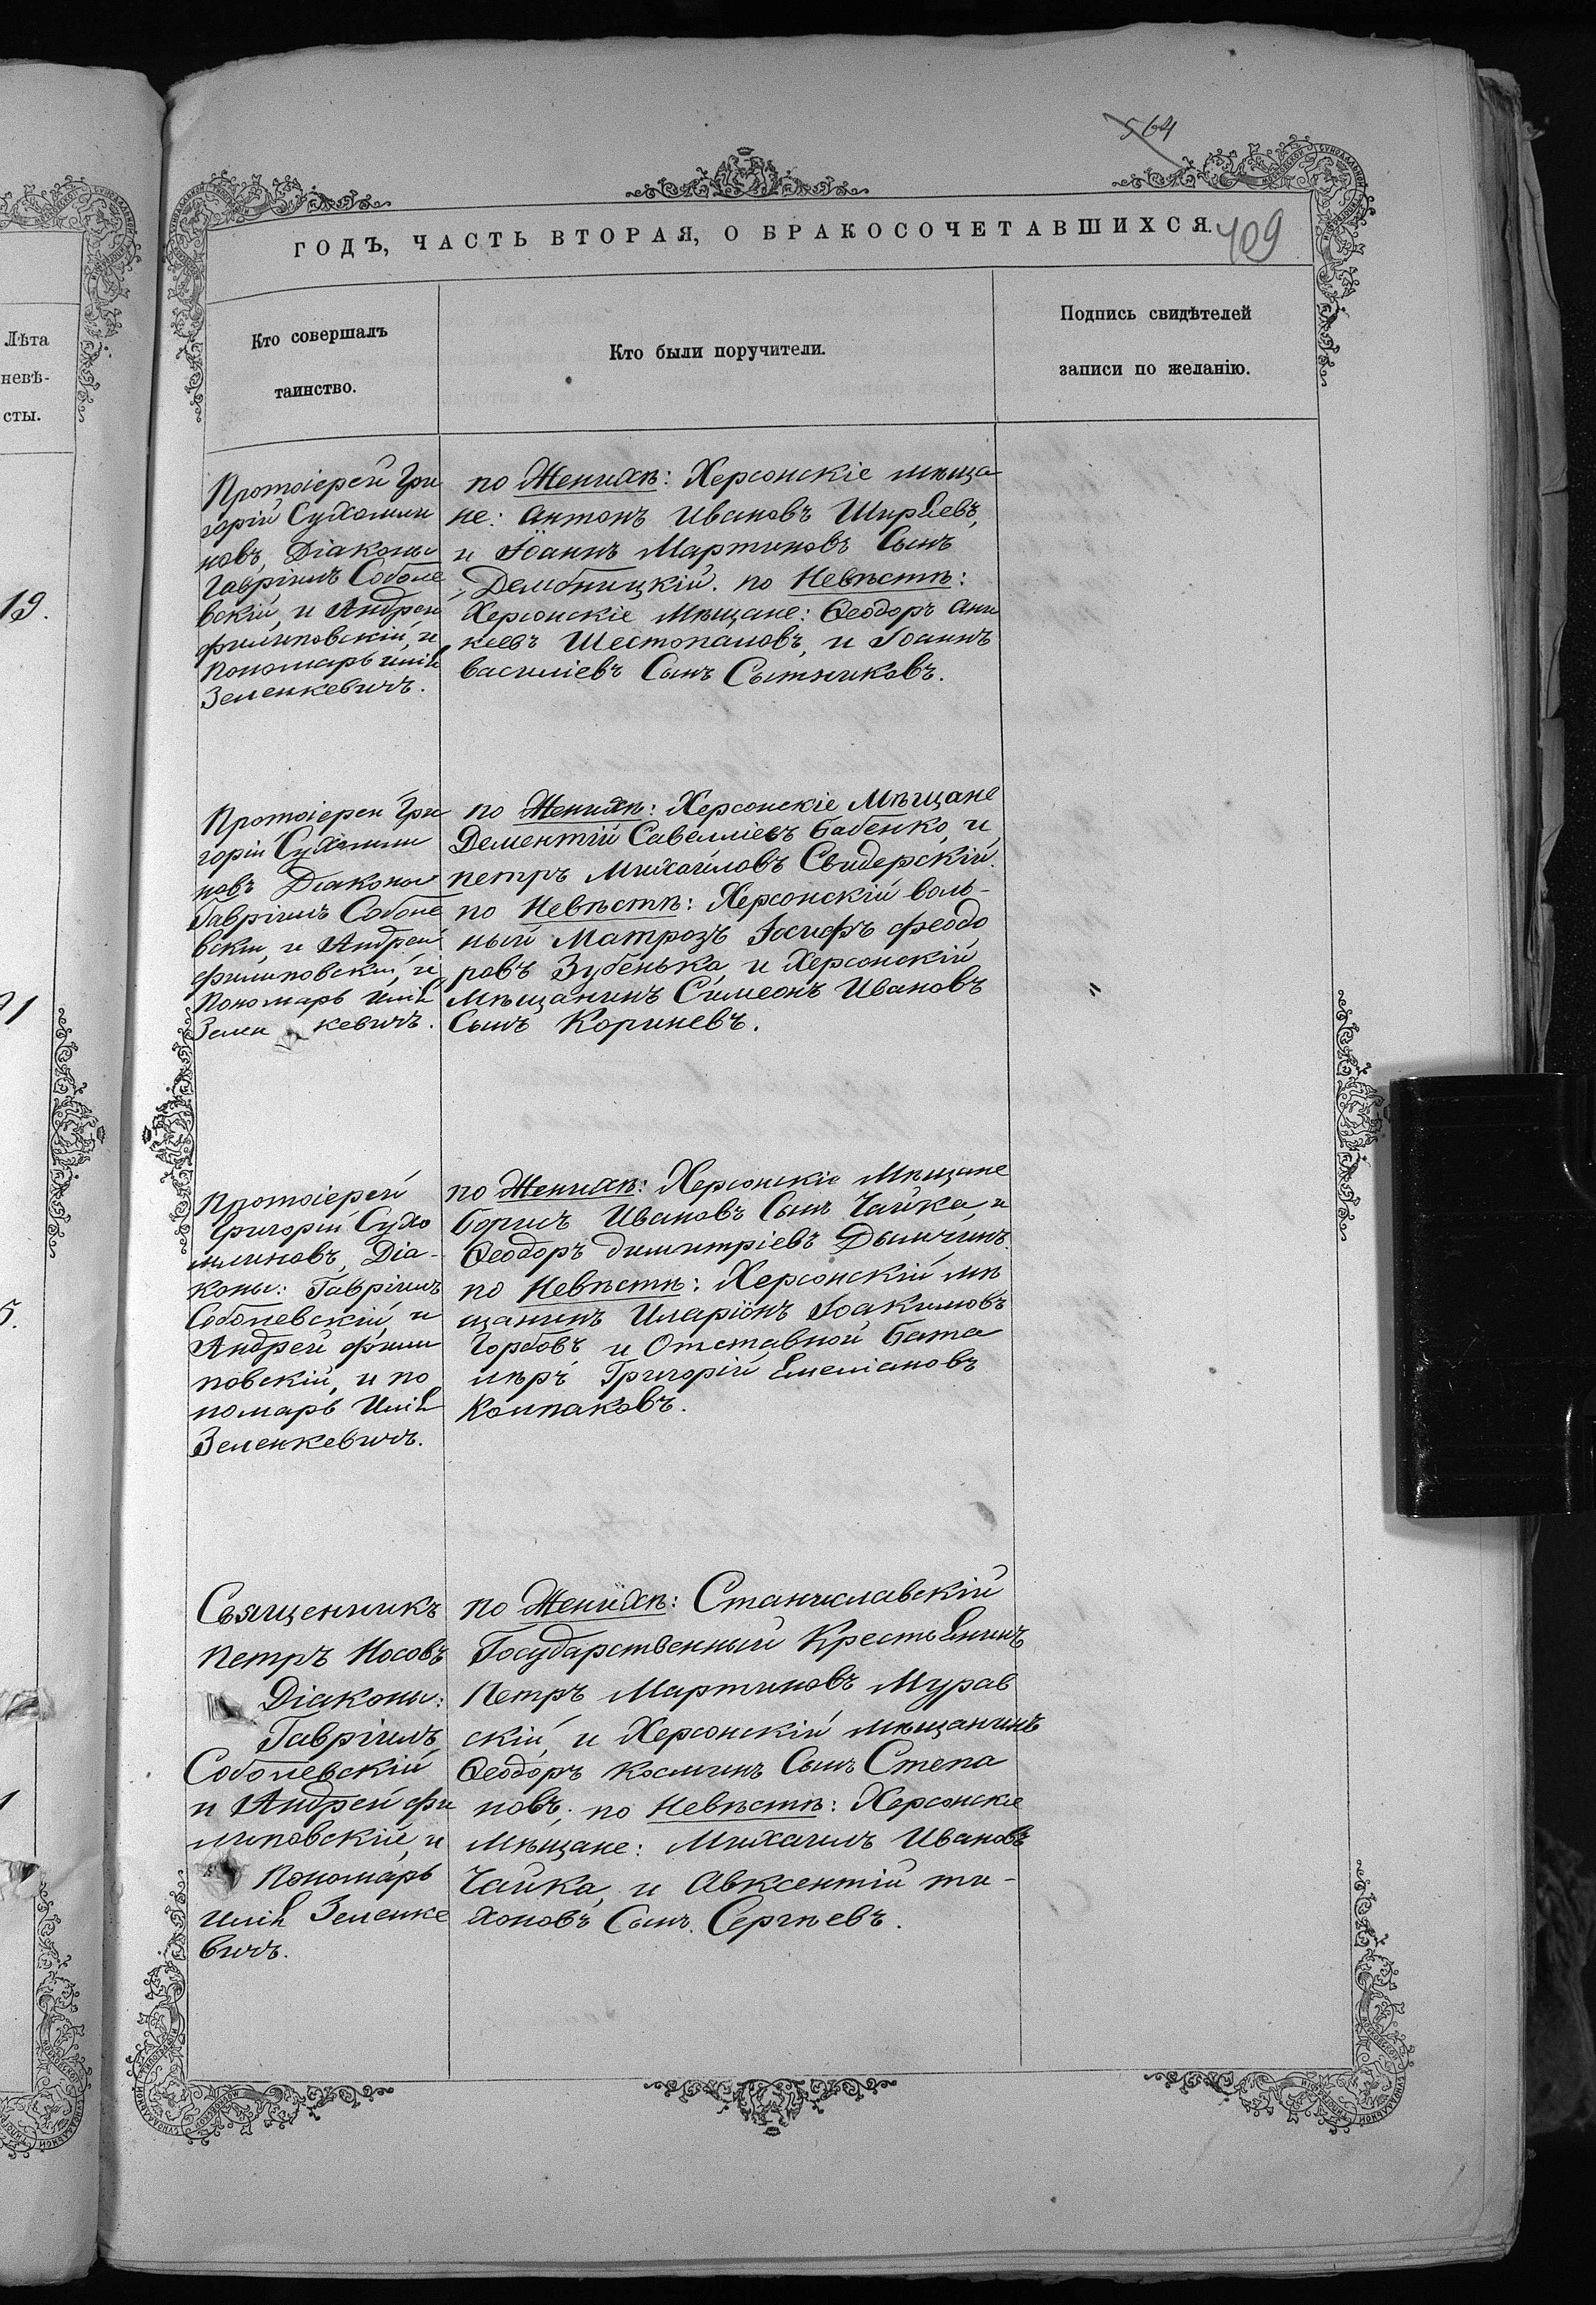 564
409
ГОДЪ, ЧАСТЬ ВТОРАЯ, О БРАКОСОЧЕТАВШИХСЯ.
Лѣта
невѣ-
сты.
19.
Кто совершалъ
таинство.
Кто были поручители.
Подпись свидѣтелей
записи по желанію.
Протоіерей Гри
горій Сухомли
новъ, Діаконы
Гавріилъ Соболе
вскій, и Андрей
Филиповскій, и
Пономарь Илія
Зеленкевичъ.
по Женихѣ: Херсонскіе мѣща
не: Антонъ Ивановъ Ширяевъ,
и Іоаннъ Мартиновъ Сынъ
Дембницкій. по Невѣстѣ:
Херсонскіе Мѣщане: Ѳеодоръ Ани
кеевъ Шестопаловъ, и Іоаннъ
Василіевъ Сынъ Сытниковъ.
Протоіерей Гри
горій Сухомли
новъ Діаконы
Гавріилъ Соболе
вскій, и Андрей
Филиповскій, и
Пономарь Илія
Зелен кевичъ.
по Женихѣ: Херсонскіе Мѣщане
Дементій Савелліевъ Бабенко, и
Петръ Михайловъ Свидерскій.
по Невѣстѣ: Херсонскій воль-
ный Матрозъ Іосифъ Феодо
ровъ Зубенька, и Херсонскій
Мѣщанинъ Симеонъ Ивановъ
Сынъ Кориневъ.
Протоіерей
Григорій Сухо
млиновъ, Діа-
коны: Гавріилъ
Соболевскій, и
Андрей Фили
повскій, и по
номарь Илія
Зеленкевичъ.
по Женихѣ: Херсонскіе Мѣщане
Борисъ Ивановъ Сынъ Чайка, и
Ѳеодоръ Димитріевъ Дымчинъ.
по Невѣстѣ: Херсонскій мѣ
щанинъ Иларіонъ Іоакимовъ
Горбовъ и Отставной Бата
лѣръ Григорій Емеліановъ
Колпаковъ.
Священникъ
Петръ Носовъ
Діаконы:
Гавріилъ
Соболевскій
и Андрей Фи
липовскій, и
Пономарь
Илія Зеленке
вичъ.
по Женихѣ: Станиславскій
Государственный Крестьянинъ
Петръ Мартиновъ Мурав
скій, и Херсонскій мѣщанинъ
Ѳеодоръ Косминъ Сынъ Степа
новъ. по Невѣстѣ: Херсонскіе
Мѣщане: Михаилъ Ивановъ
Чайка, и Авксентій Ти-
хоновъ Сынъ Сергѣевъ.